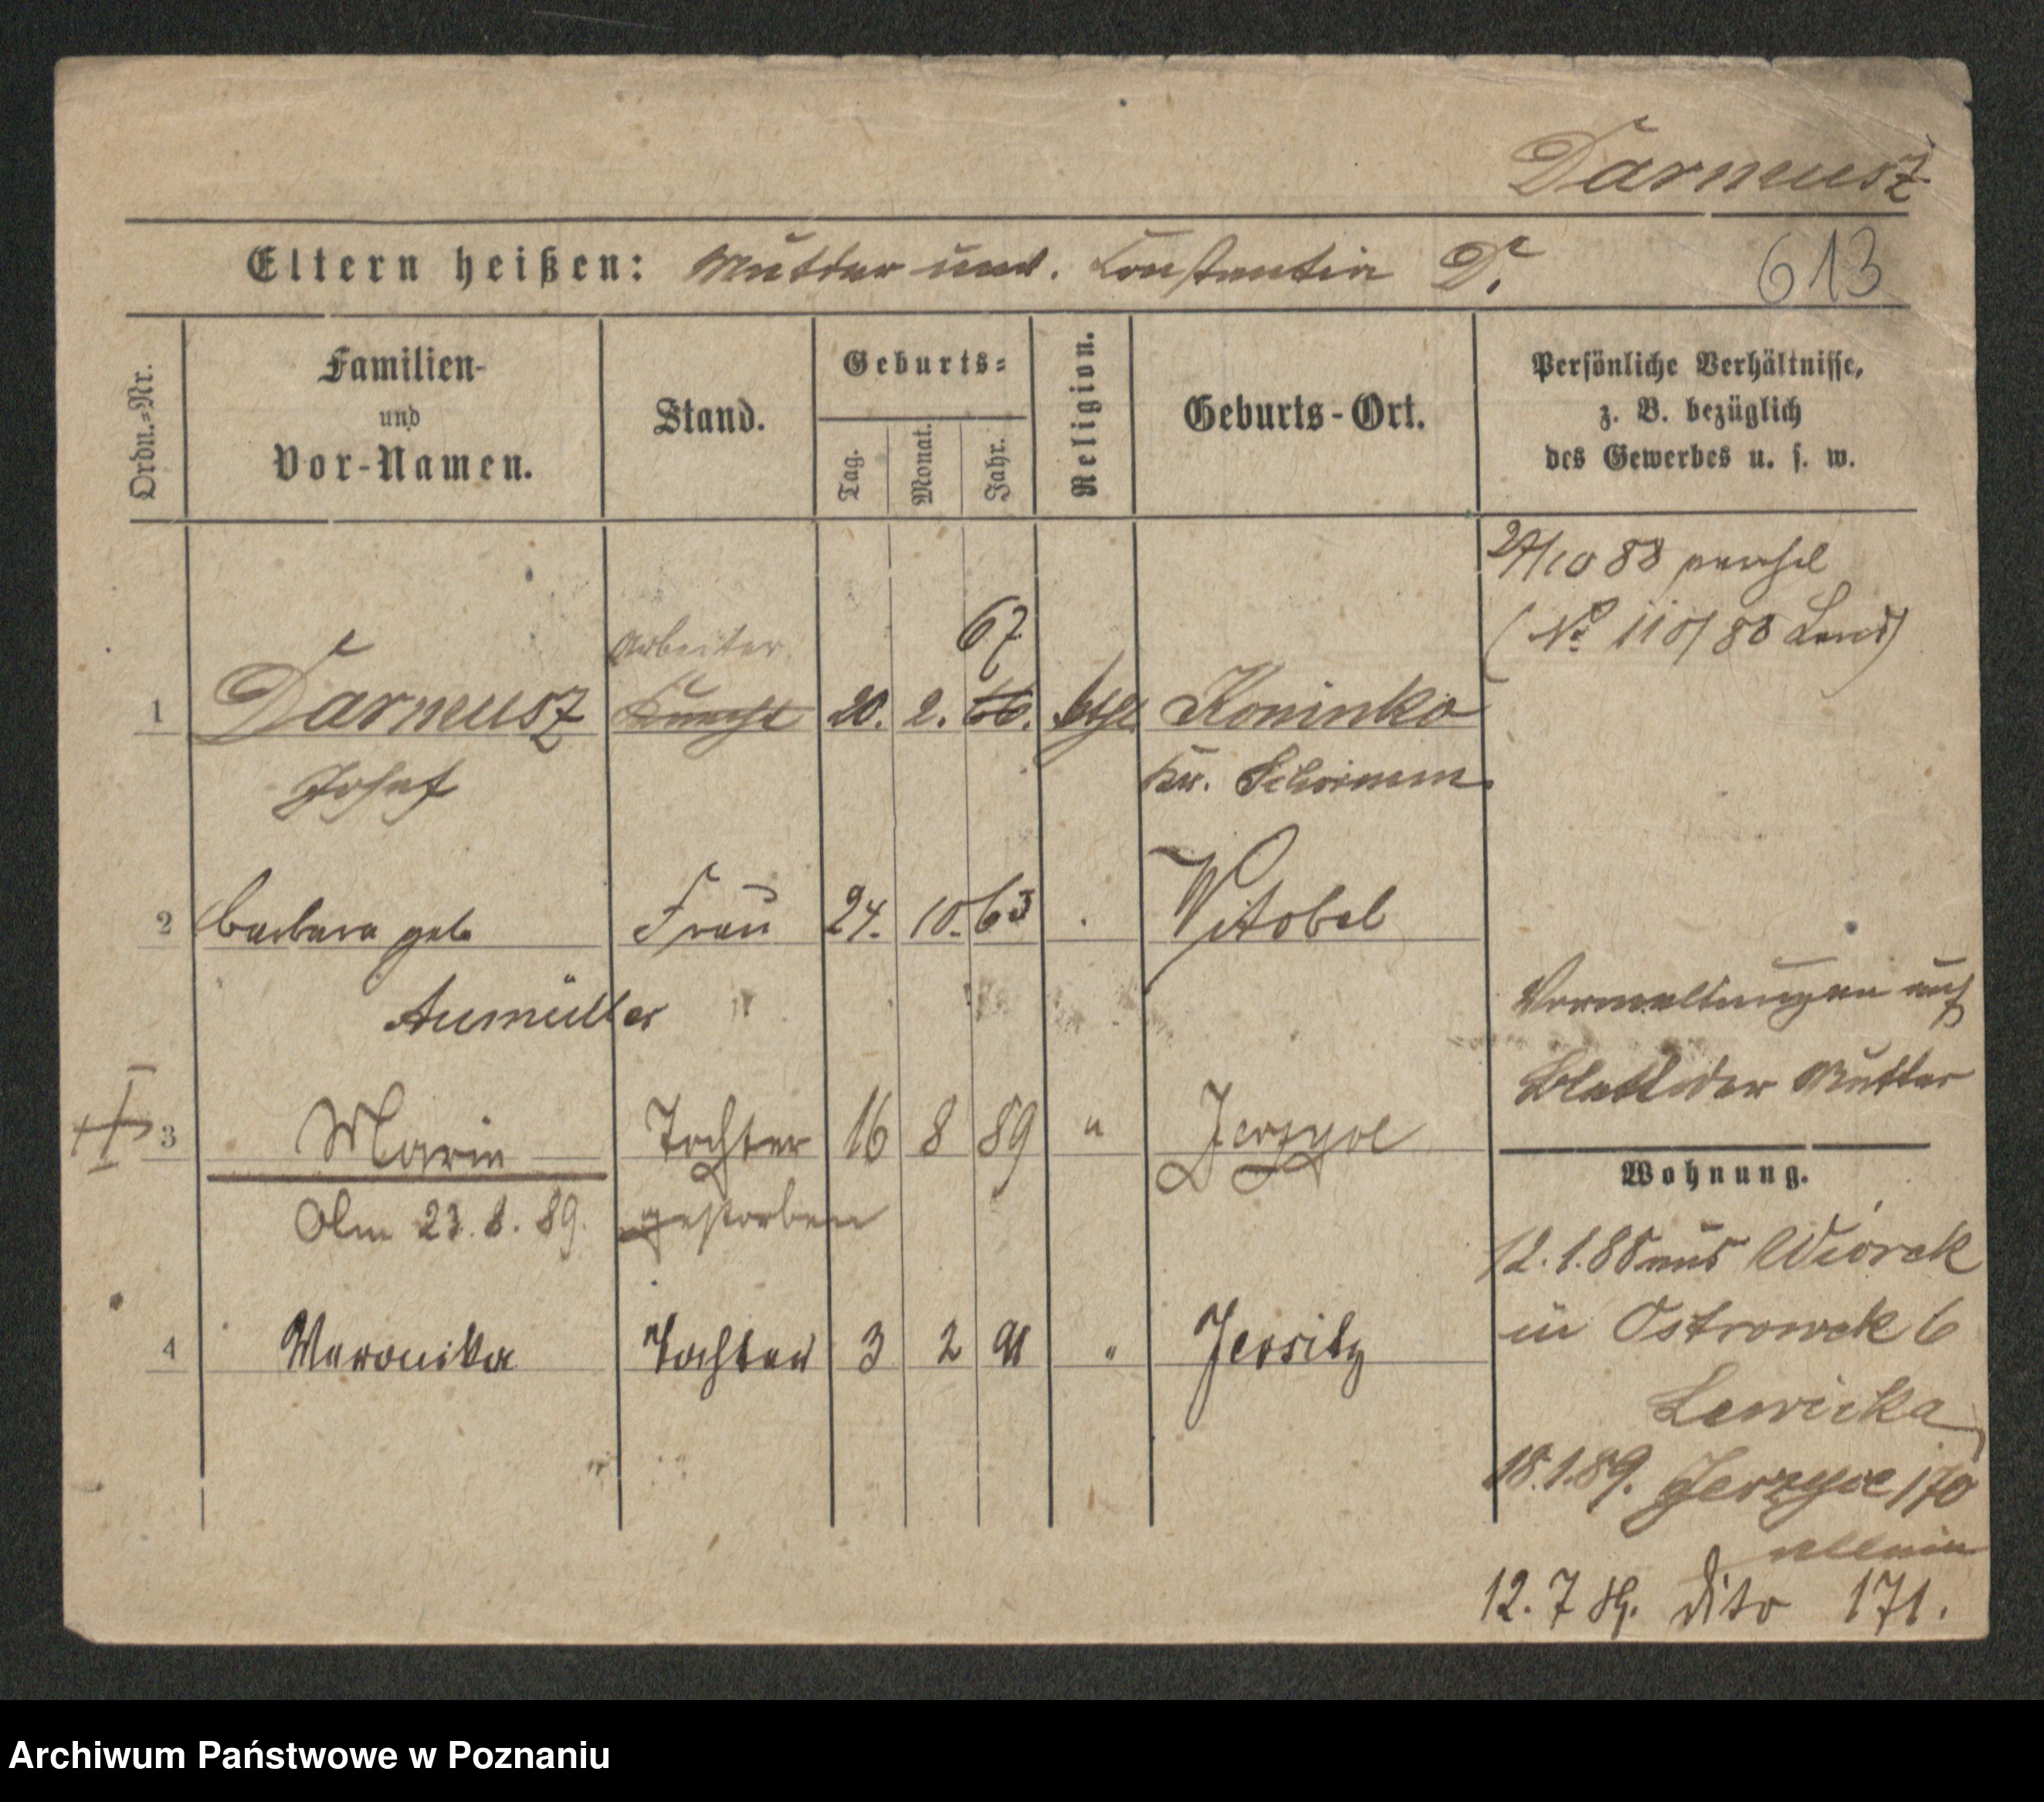 Darneusz
Eltern heißen: Mutter unv. Constantia D.
613
Ordn.=Nr.
Familien-
und
Vor-Namen.
Stand.
Geburts=
Tag.
Monat.
Jahr.
Religion.
Geburts-Ort.
Persönliche Verhältnisse,
z. B. bezüglich
des Gewerbes u. s. w.
10 88
(No 110/88 Land)
Arbeiter
67
1 Darneusz Knecht 20. 2. 66. kath Koninko
Josef Kr. Schrimm
2 Barbara geb Frau 24. 10. 63 Witobel
Aumüller
auf
Blatt der Mutter
3 Marie Tochter 16 8 89 " Jerzyce
Am 23. 8. 89. gestorben
4 Veronika Tochter 3 2 91 " Jersitz
Wohnung.
12.1.88 aus Wiórek
in Ostrowek 6
Lewicka
18.1.89. Jerzyce 170
allein
12.7 89. dito 171.
Archiwum Państwowe w Poznaniu